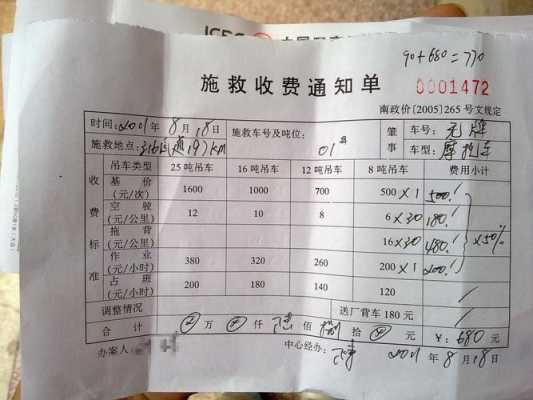 ICBC 中国
90+680=770
施救收费通知单
0001472
南政价[2005]265号文规定
时间: 2011年8月18日 施救车号及吨位: 01# 肇事 车号: 无牌
施救地点: KM 车型: 摩托车
收费标准 吊车类型 25吨吊车 16吨吊车 12吨吊车 8吨吊车 费用小计
基价(元/次) 1600 1000 700 500×1 500.!
空驶(元/公里) 12 10 8 6×30 180.!
拖背(元/公里) 16×30 480.! ×50%
作业(元/小时) 380 320 260 200×1 200.!
占班(元/小时) 200 180 140 120 /
调整情况 送厂背车180元 /
合计 万 仟 陆佰捌拾 元 ¥: 680元
办案人: 中心经办: 2011年8月18日